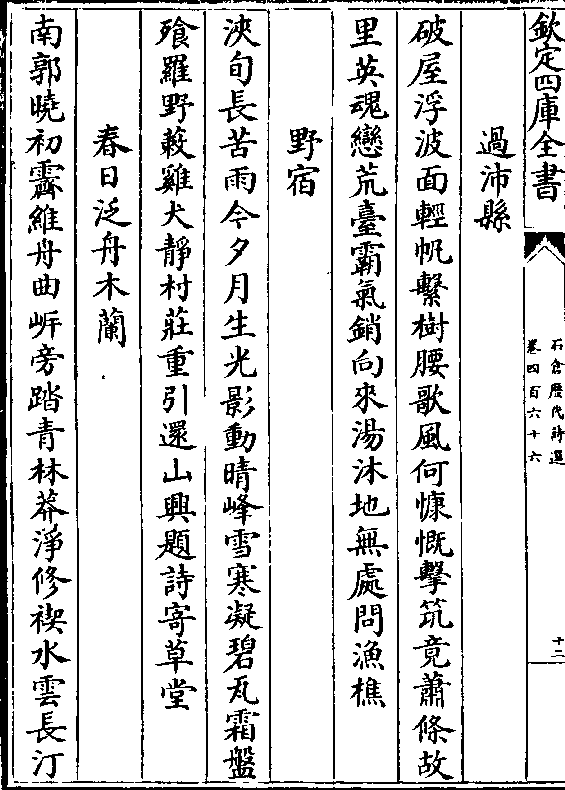 欽定四庫全書
石倉歴代詩選
卷四百六十六
十二
過沛縣
破屋浮波面輕帆繫樹腰歌風何慷慨擊筑竟蕭條故
里英魂戀荒臺霸氣銷向來湯沐地無處問漁樵
野宿
浹旬長苦雨今夕月生光影動晴峰雪寒凝碧瓦霜盤
飱羅野蔌雞犬靜村莊重引還山興題詩寄草堂
春日泛舟木蘭
南郭曉初霽維舟曲岍旁踏青林莽淨修禊水雲長汀